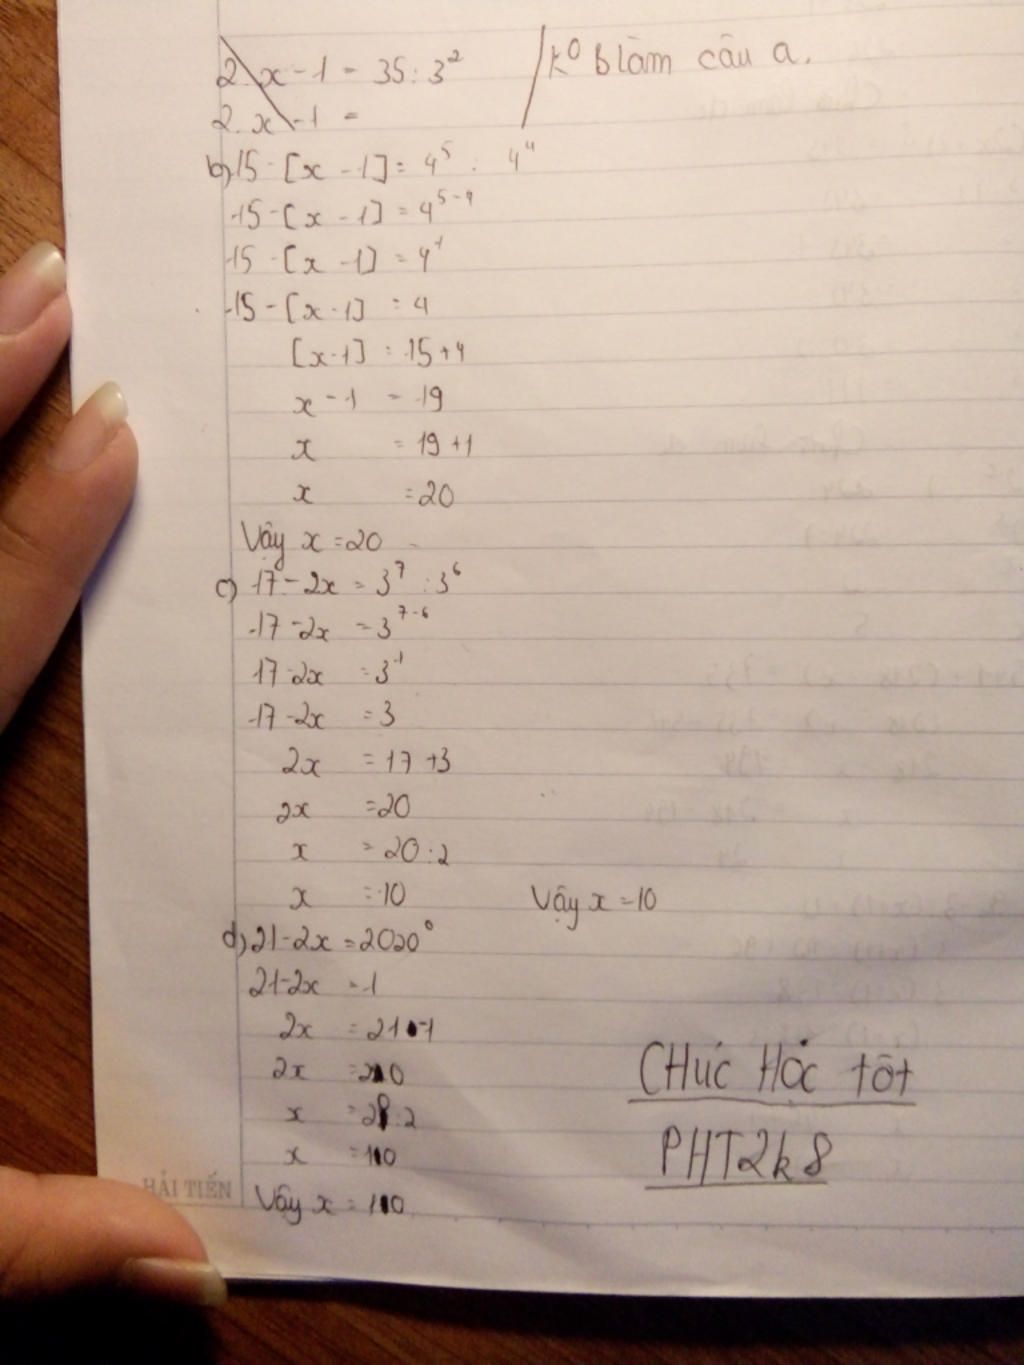 2.x-1 = 35:3²
k⁰ b làm câu a.
2.x-1 =
b) 15-[x-1] = 4⁵ : 4⁴
15-[x-1] = 4⁵⁻⁴
15-[x-1] = 4¹
15-[x-1] = 4
[x-1] = 15+4
x-1 = 19
x = 19+1
x = 20
Vậy x = 20
c) 17-2x = 3⁷ : 3⁶
17-2x = 3⁷⁻⁶
17-2x = 3¹
17-2x = 3
2x = 17+3
2x = 20
x = 20:2
x = 10
Vậy x = 10
d) 21-2x = 2020⁰
21-2x = 1
2x = 21-1
2x = 20
x = 20:2
x = 10
Vậy x = 10
CHúc Học tốt
PHT2k8
HẢI TIẾN